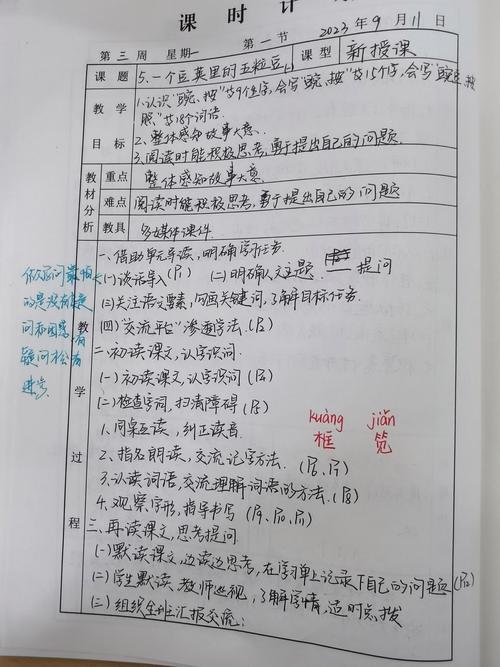 课 时 计
第 三 周 星期一 第 一 节 2023 年 9 月 11 日
课 题 5.一个豆荚里的五粒豆 课 型 新授课
教 学 目 标 1.认识"豌、按"等9个生字,会写"豌、按"等15个字,会写"豌豆、按
照"等18个词语。
2、整体感知故事大意.
3.阅读时能积极思考,勇于提出自己的问题.
教 材 分 析 重点 整体感知故事大意.
难点 阅读时能积极思考,勇于提出自己的问题
教具 多媒体课件
教 学 过 程
一、借助单元导读,明确学习任务.
(一)谈话导入(P) (二)明确人文主题. 提问
(三)关注语文要素,勾画关键词,了解目标任务.
(四)"交流平台"渗透学法.(P2)
二、初读课文,认字识词.
(一)初读课文,认字识词(P4)
(二)检查字词,扫清障碍(P5)
1.同桌互读,纠正读音.
2、指名朗读,交流记字方法.(P6、P7)
3.认读词语,交流理解词语的方法.(P8)
4.观察字形,指导书写(P9、P10、P11)
三、再读课文,思考提问
(一)默读课文,边读边思考,在学习单上记录下自己的问题(P12)
(二)学生默读,教师巡视,了解学情,适时点拨
(三)组织全班汇报交流:
的是没有
疑问
进步.
kuàng jiǎn
框 笕